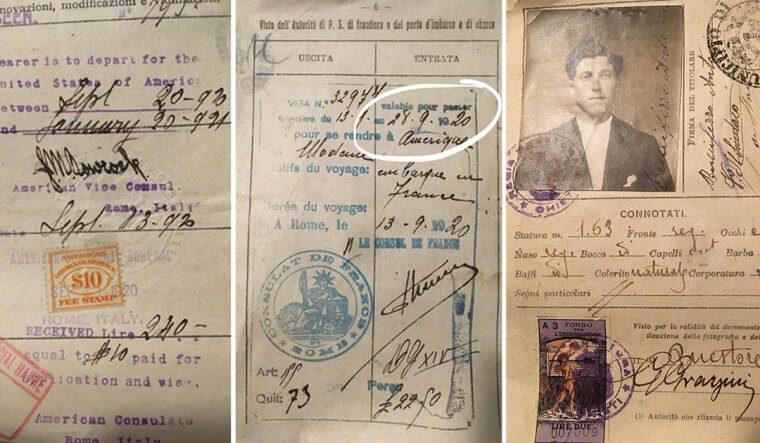 SEEN.
novazioni, modificazioni e
earer is to depart for the
nited States of Americ
etween Sept 20-920
nd January 20-921
American Vice Consul.
Rome, Italy
ate Sept. 13-920
AMERICAN
CONSULAR SERVICE
$10
FEE STAMP
ROME, ITALY.
RECEIVED Lire 240-
equal to $10 paid for
lication and vise.
American Consulate
Rome, Italy
6
Visto dell'Autorità di P. S. di frontiera o del porto d'imbarco e di sbarco
USCITA ENTRATA
VISA N.° valable pour passer
au 28.9.1920
pour se rendre à Amérique
Madame
otifs du voyage: embarque en
France
urée du voyage:
A Rome, le 13-9-1920
LE CONSUL DE FRANCE
CONSULAT DE FRANCE
ROME
Art:
Quit: 73
FIRMA DEL TITOLARE
CHIETI
CONNOTATI.
Statura m. 1.63 Fronte reg. Occhi
Naso reg. Bocca Capelli Barba
Baffi Colorito naturale Corporatura
Segni particolari
Visto per la validità del documento
ificazione della fotografia e del
A 3 FONDO
PER L'EMIGRAZIONE
LIRE DUE
Questore
(1) Autorità che rilascia il passapo